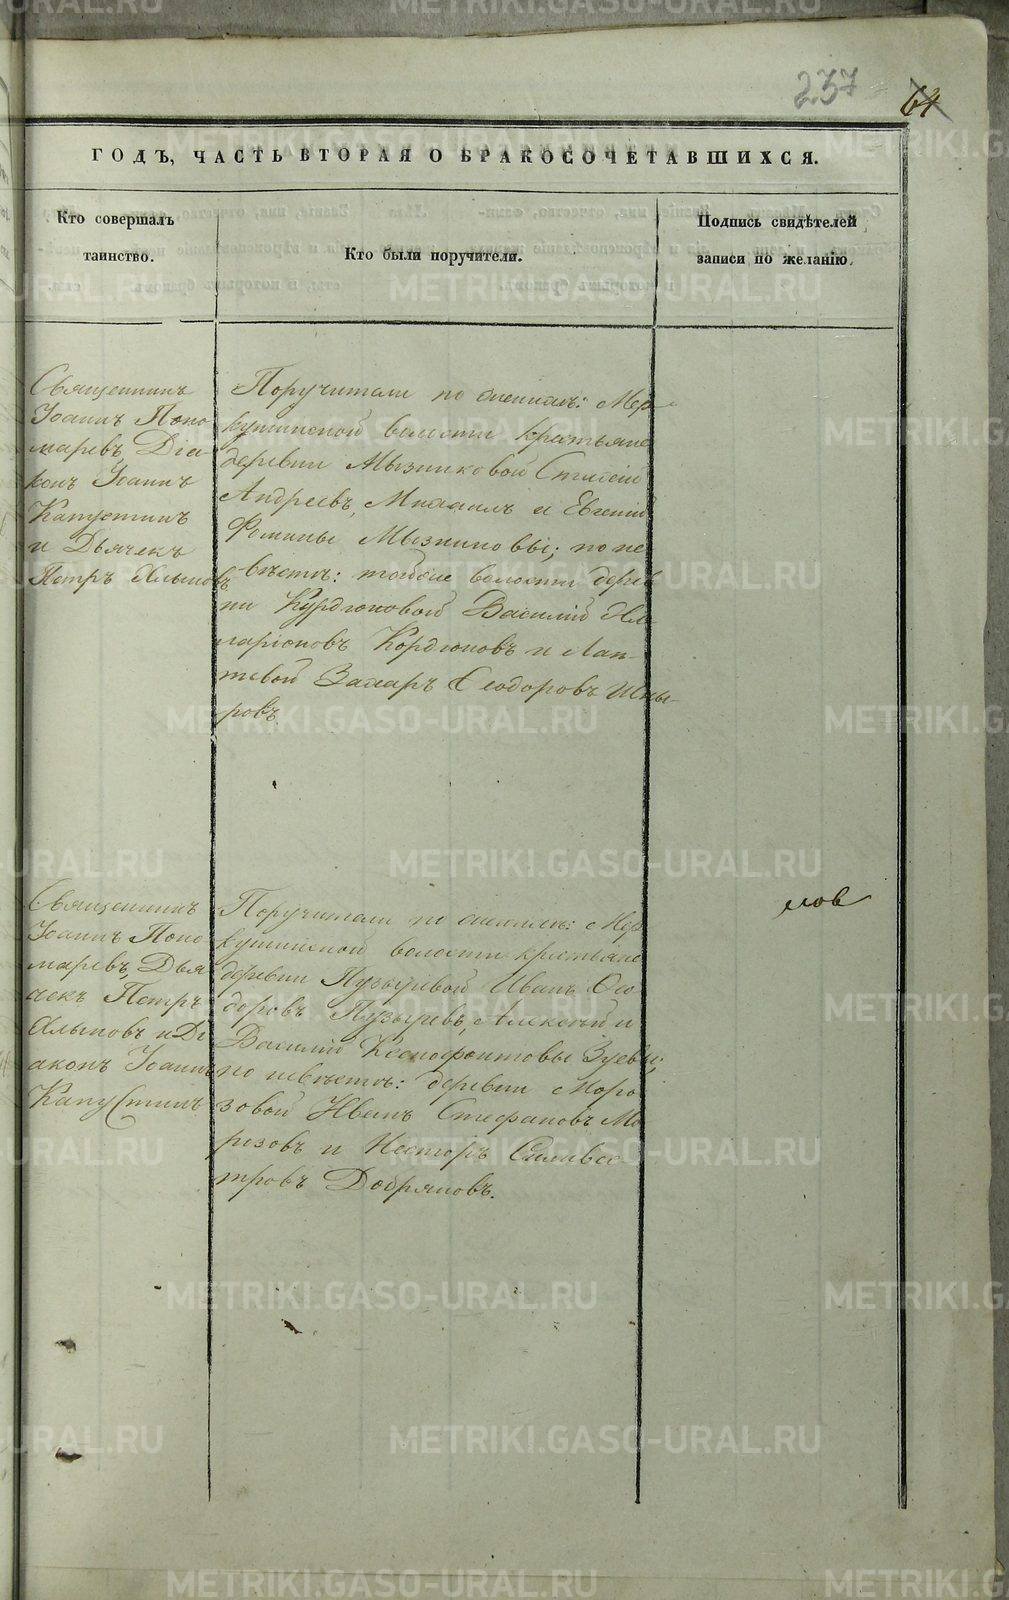 237 64
ГОДЪ, ЧАСТЬ ВТОРАЯ О БРАКОСОЧЕТАВШИХСЯ.
Кто совершалъ
таинство.
Кто были поручители.
Подпись свидѣтелей
записи по желанію.
Священникъ
Іоаннъ Поно
маревъ, Діа-
конъ Іоаннъ
Капустинъ
и Дьячекъ
Петръ Хлыновъ
Поручители по женихѣ: Мер
кушинской волости крестьяне
деревни Мызниковой
Андреевъ, Михаилъ и Евгений
Фомины Мызниковы; по не
вѣстѣ: тойже волости дерев
ни Курдюковой Василій Ил
ларіоновъ Кордюковъ и Лап-
тевой Захаръ Феодоровъ Шны-
ровъ.
Священникъ
Іоаннъ Поно
маревъ, Дья
чекъ Петръ
Хлыновъ и Ді
аконъ Іоаннъ
Капустинъ
Поручители по женихѣ: Мер
кушинской волости крестьяне
деревни Пузыревой Иванъ Фео
доровъ Пузыревъ, Алексѣй и
Василій Ксенофонтовы Зуевы;
по невѣстѣ: деревни Моро
зовой Иванъ Стефановъ Мо
розовъ и Несторъ Силивес
тровъ Добряковъ.
мов
METRIKI.GASO-URAL.RU